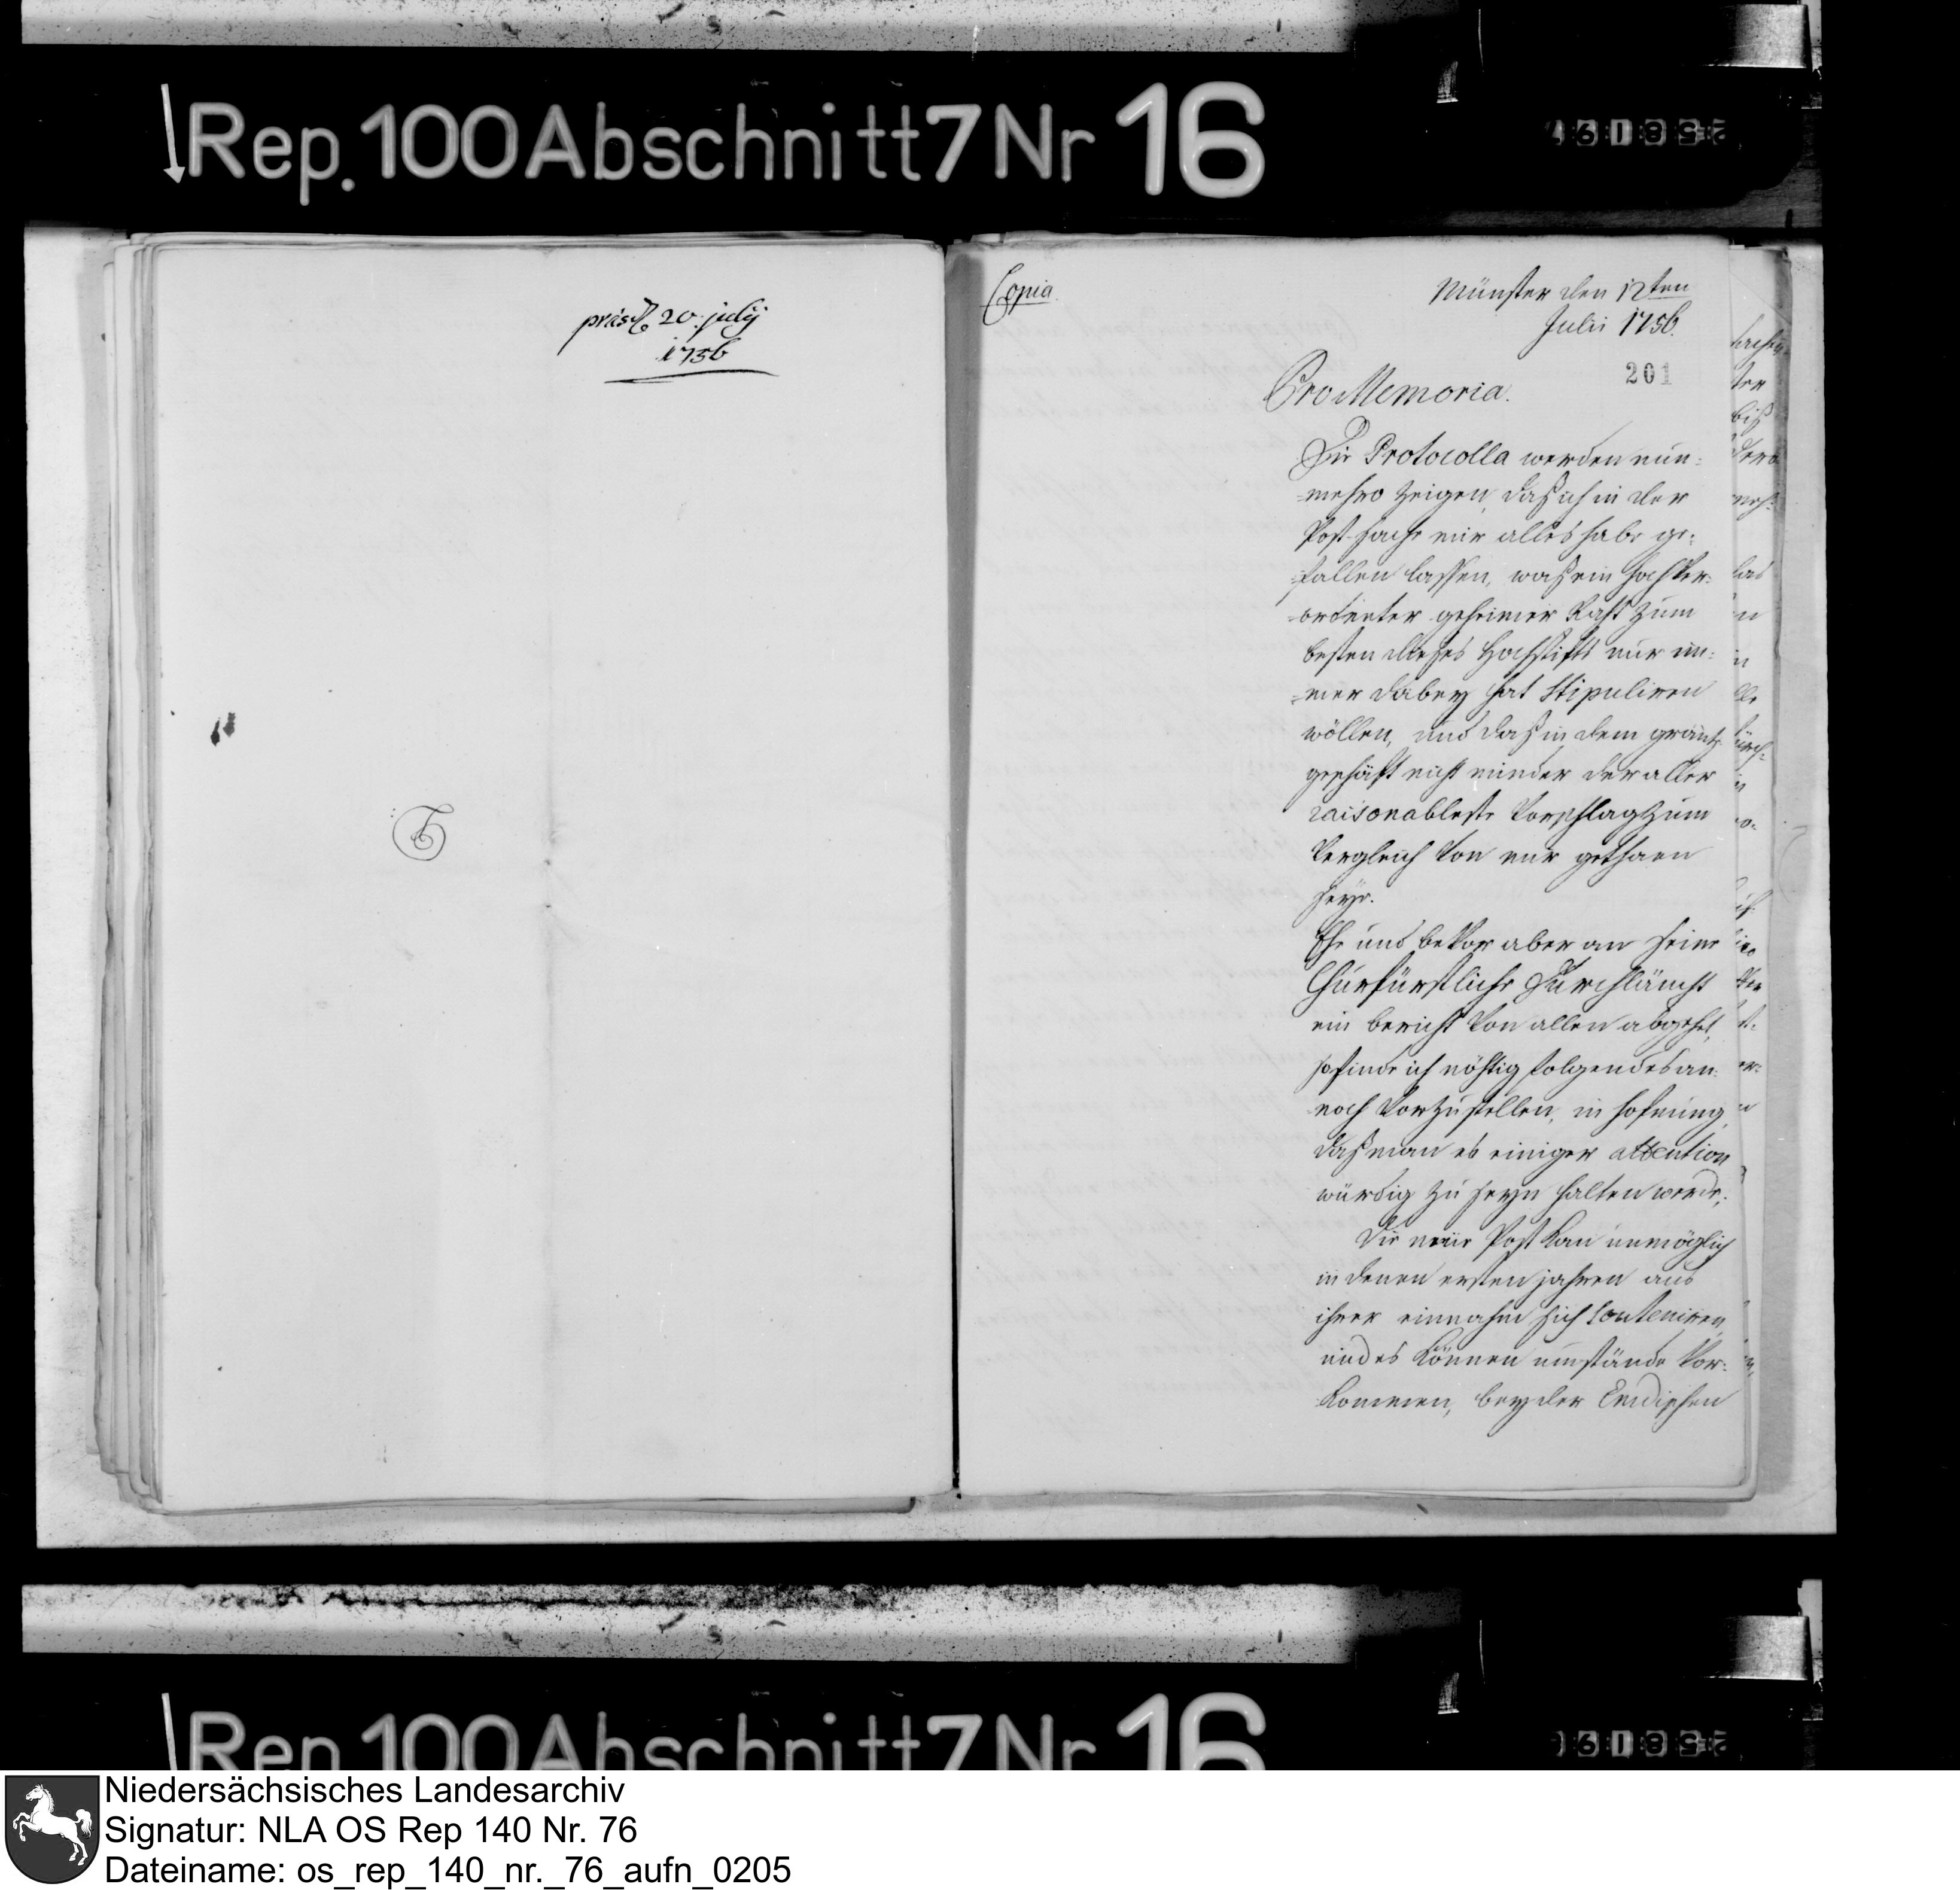 Rep. 100 Abschnitt 7 Nr 16
präs. 20. julij
1756
Copia
Münster den 12ten
Julii 1756.
201
Pro Memoria.
Die Protocolla werden nun-
mehro zeigen, daß ich in der
Post-sache mir alles habe ge-
fallen lassen, waß ein hochver-
ordneter geheimer Raht zum
besten dieses Hochstifts nur im-
mer dabey hat stipuliren
wöllen, und daß in dem gräntz
geschäft nicht minder der aller
raisonableste Vorschlag zum
Vergleich von mir gethaen
seye.
Ehe und bevor aber an seine
Churfürstliche Durchläucht
ein bericht von allen abgehet,
so finde ich nöhtig folgendes an-
noch vorzustellen, in hofnung,
daß man es einiger attention
würdig zu seyn halten werde.
Die neüe Post kan unmöglich
in denen ersten jahren aus
ihrer einnahm sich souteniren,
und es können umstände vor-
kommen, bey der Emdischen
Rep. 100 Abschnitt 7 Nr 16
Niedersächsisches Landesarchiv
Signatur: NLA OS Rep 140 Nr. 76
Dateiname: os_rep_140_nr._76_aufn_0205